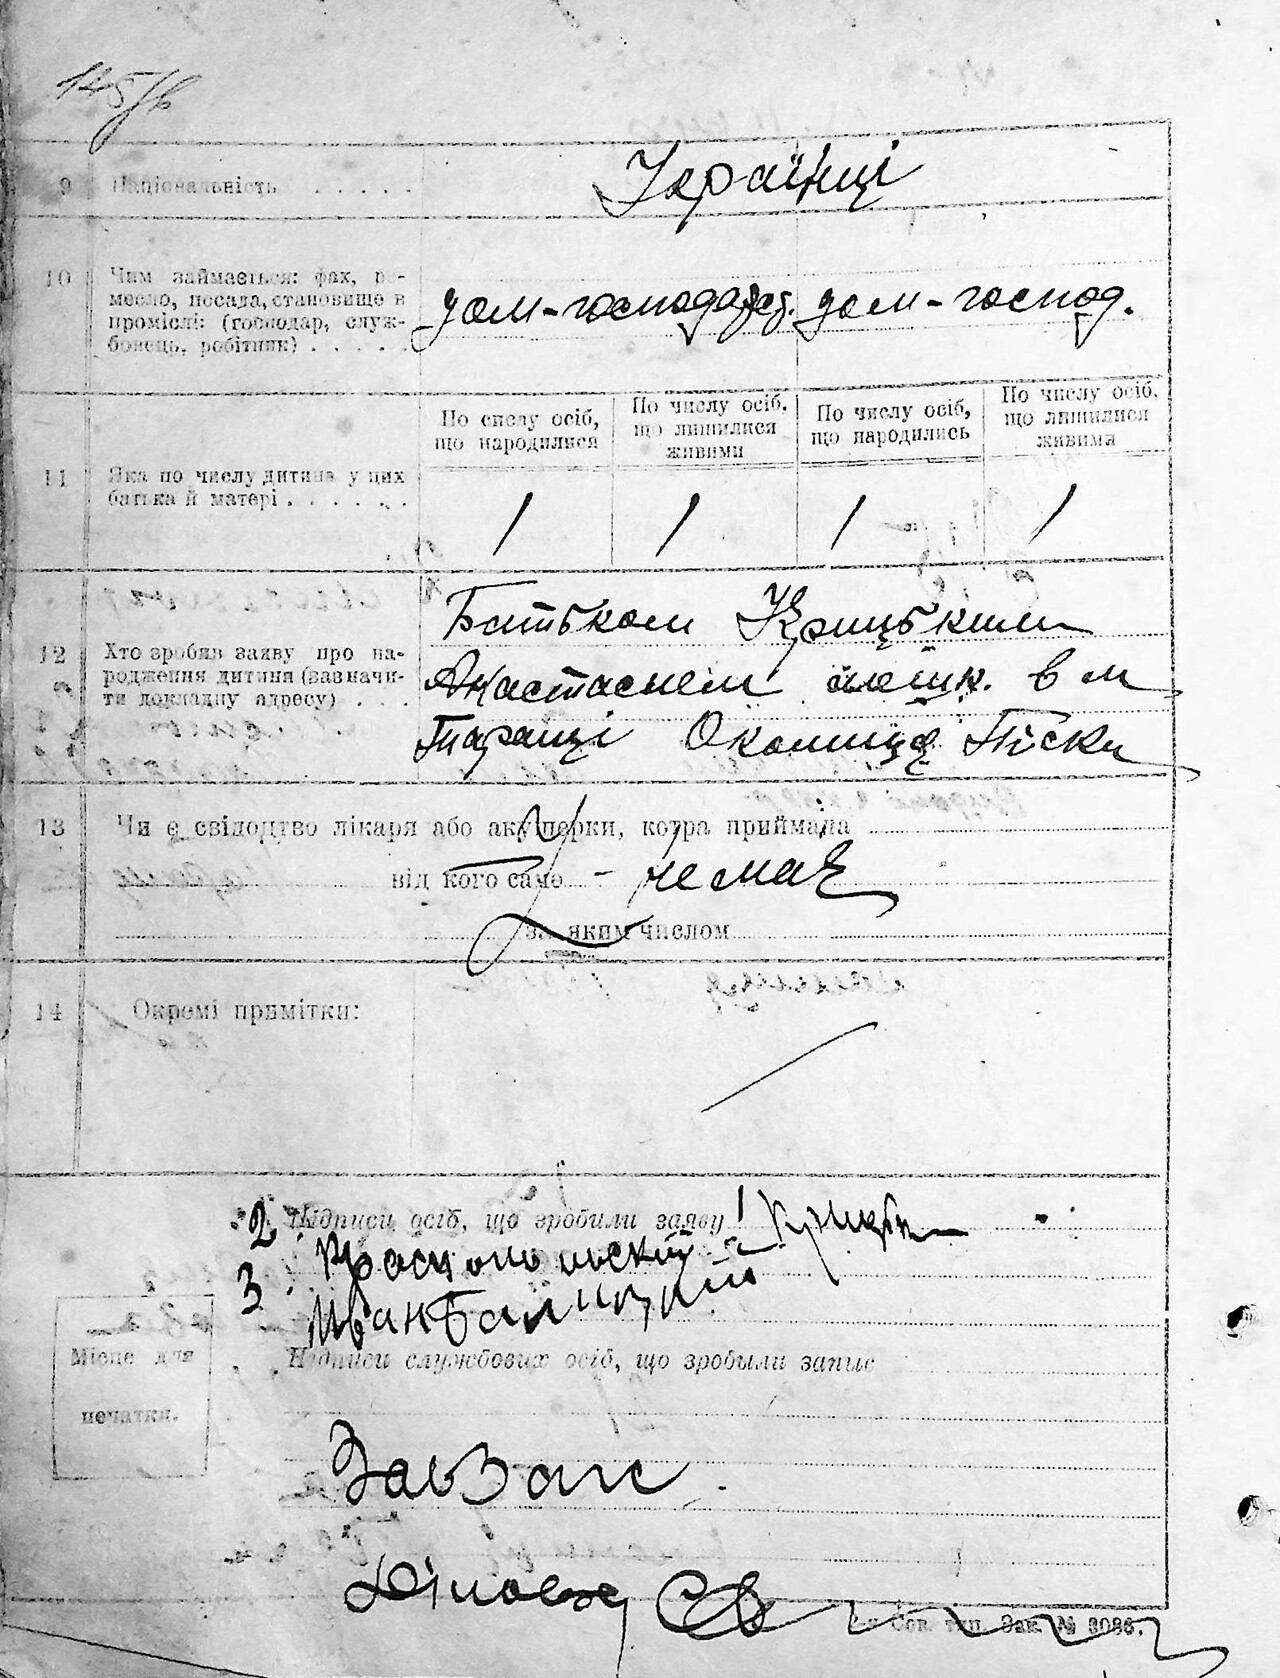 145/в
9 Національність . . . . . Українці
10 Чим займається: фах, ре-
месло, посада, становище в
проміслі: (господар, служ-
бовець, робітник) . . . . .
дом-господарст. дом-господ.
По числу осіб, що народилися
По числу осіб, що лишилися живими
По числу осіб, що народились
По числу осіб, що лишилися живими
11 Яка по числу дитина у цих
батька й матері . . . . . .
1 1 1 1
12 Хто зробив заяву про на-
родження дитини (зазначи-
ти докладну адресу) . . .
Батьком Крицьким
Анастасием мешк. в м
Таращі Околиця Піски
13 Чи є свідоцтво лікаря або акушерки, котра приймала
від кого саме - немає
за яким числом
14 Окремі примітки:
2 Підписи осіб, що зробили заяву 1 Крицьк
3 Иван
Підписи службових осіб, що зробыли запис
Місце для
печатки.
ЗавЗагс
Діловод
Сов. тип. Зак. № 3086.